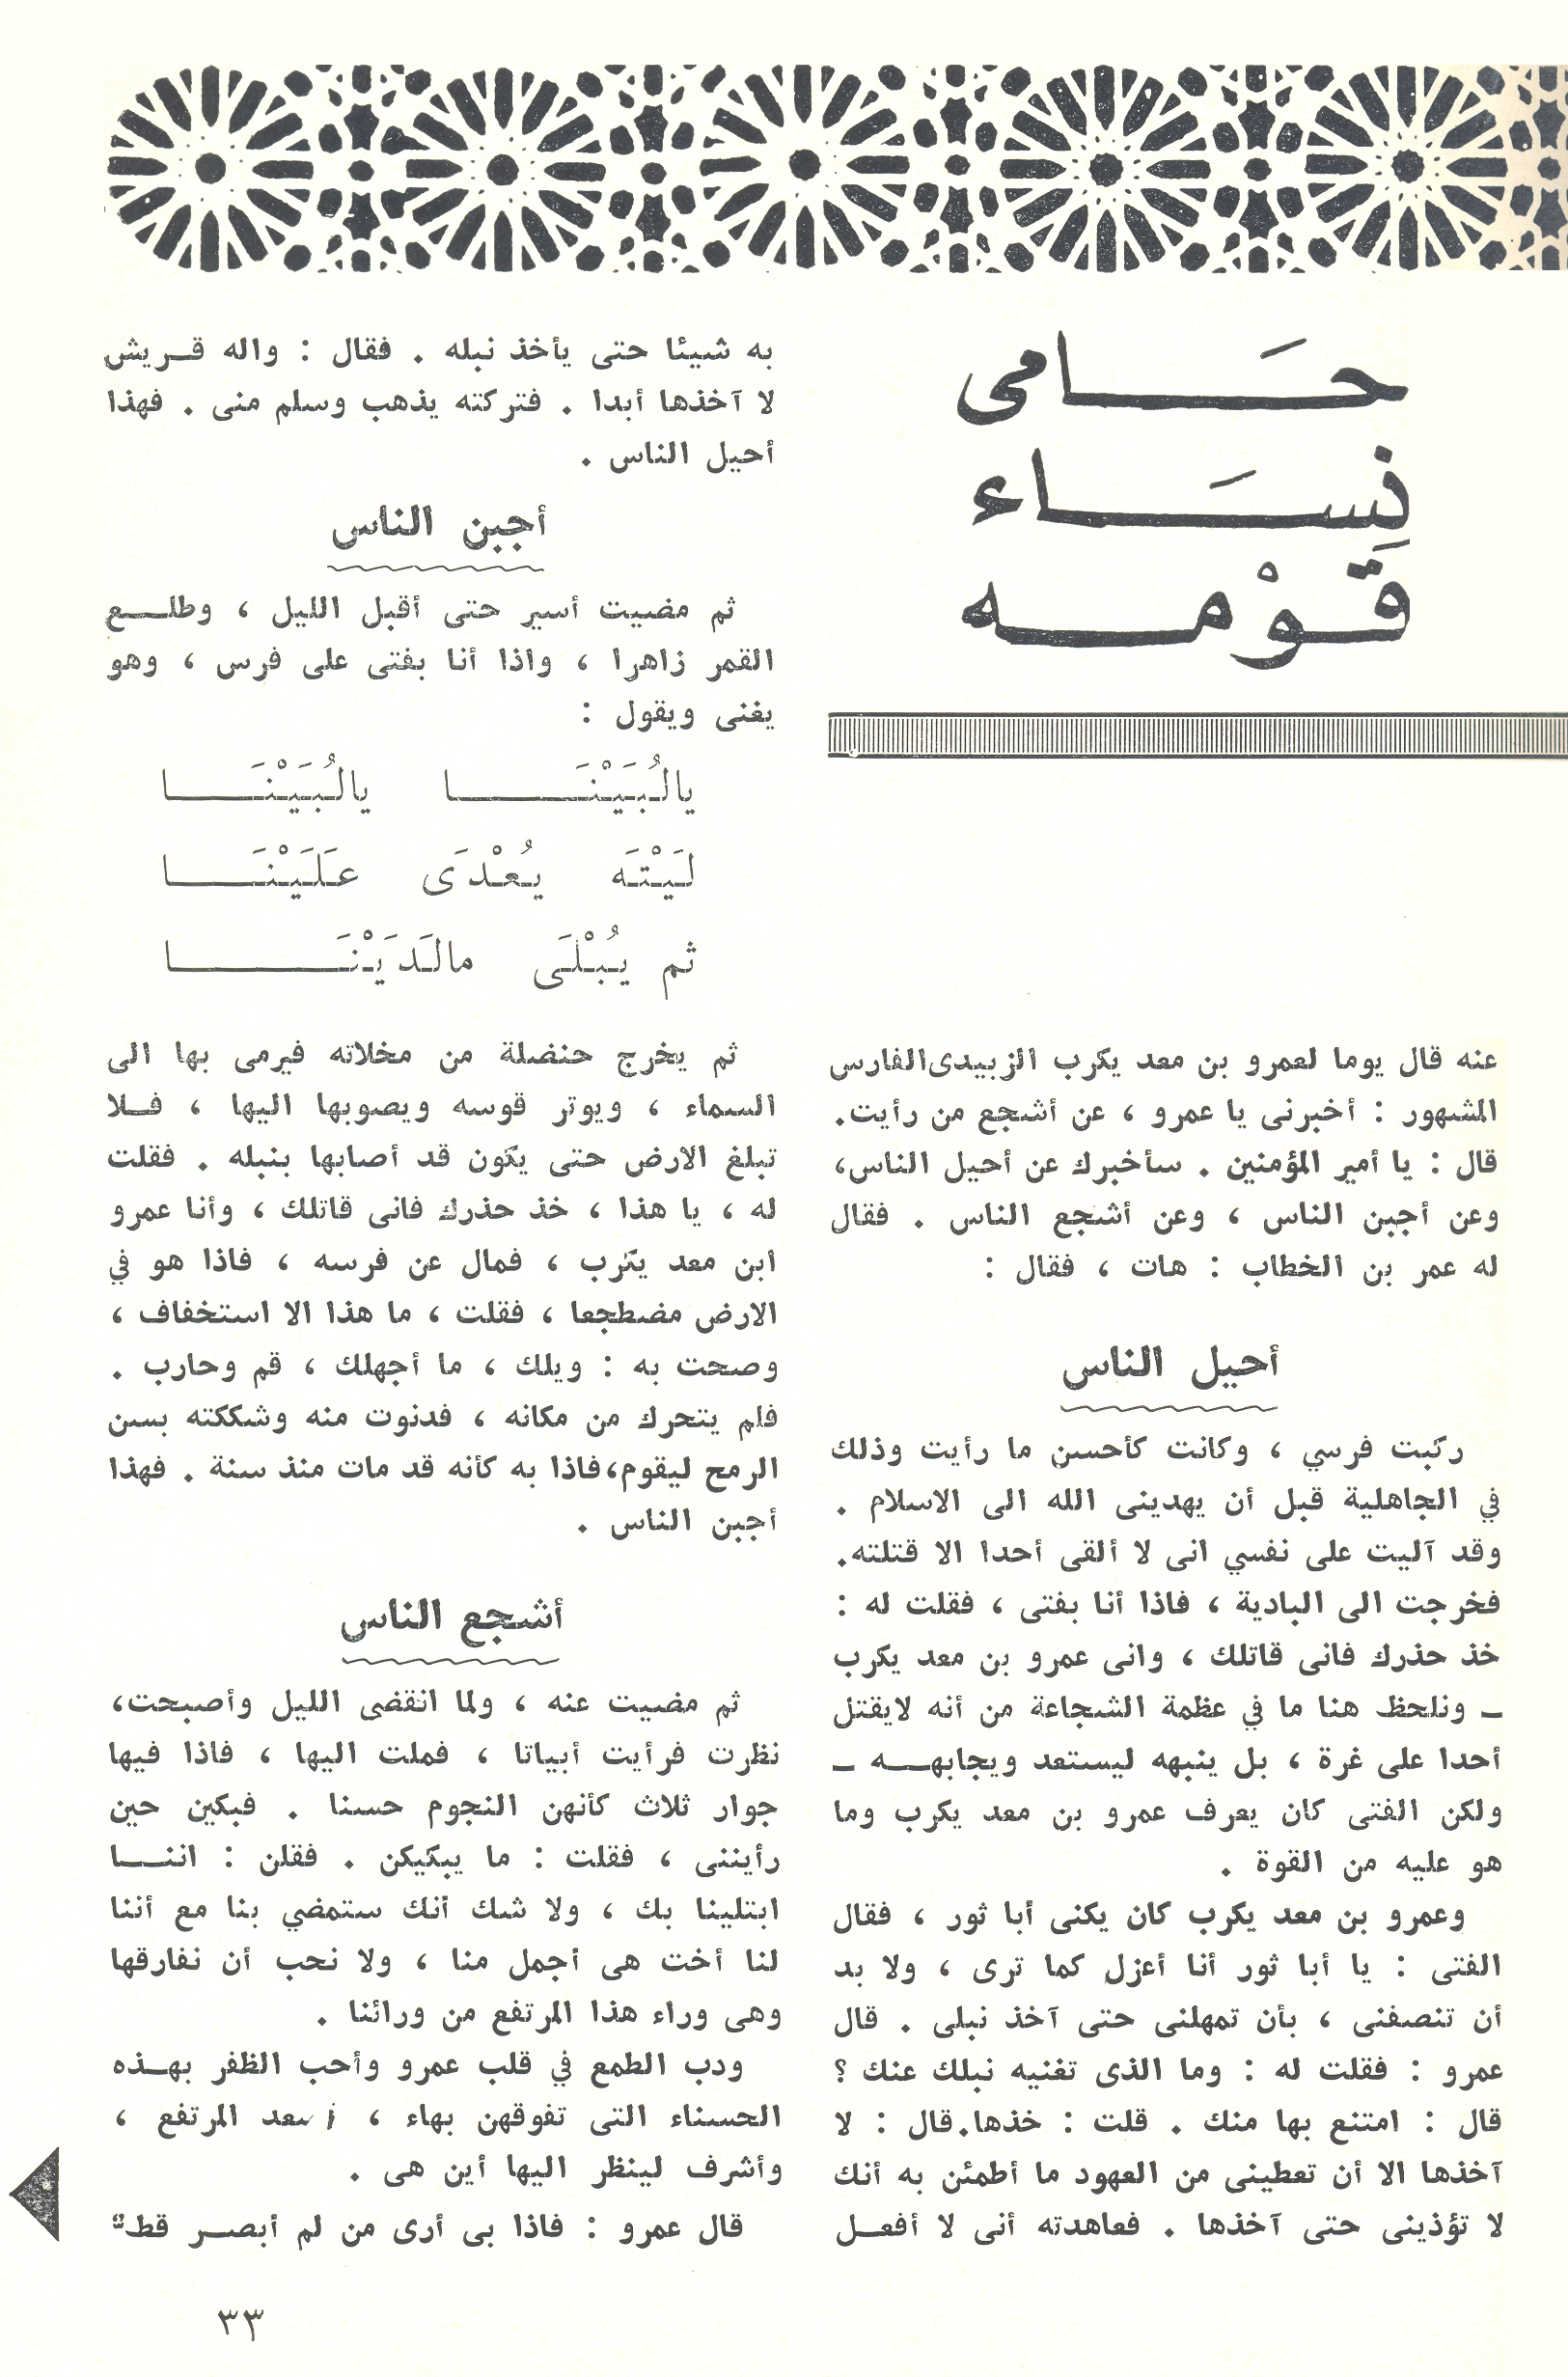 حَامى
نِسَاء
قَوْمه
عنه قال يوما لعمرو بن معد يكرب الزبيدى الفارس
المشهور : أخبرنى يا عمرو ، عن أشجع من رأيت.
قال : يا أمير المؤمنين . سأخبرك عن أحيل الناس،
وعن أجبن الناس ، وعن أشجع الناس . فقال
له عمر بن الخطاب : هات ، فقال :
أحيل الناس
ركبت فرسي ، وكانت كأحسن ما رأيت وذلك
في الجاهلية قبل أن يهدينى الله الى الاسلام .
وقد آليت على نفسي انى لا ألقى أحدا الا قتلته.
فخرجت الى البادية ، فاذا أنا بفتى ، فقلت له :
خذ حذرك فانى قاتلك ، وانى عمرو بن معد يكرب
ـ ونلحظ هنا ما في عظمة الشجاعة من أنه لايقتل
أحدا على غرة ، بل ينبهه ليستعد ويجابهـــه ـ
ولكن الفتى كان يعرف عمرو بن معد يكرب وما
هو عليه من القوة .
وعمرو بن معد يكرب كان يكنى أبا ثور ، فقال
الفتى : يا أبا ثور أنا أعزل كما ترى ، ولا بد
أن تنصفنى ، بأن تمهلنى حتى آخذ نبلى . قال
عمرو : فقلت له : وما الذى تغنيه نبلك عنك ؟
قال : امتنع بها منك . قلت : خذها.قال : لا
آخذها الا أن تعطينى من العهود ما أطمئن به أنك
لا تؤذينى حتى آخذها . فعاهدته أنى لا أفعــل
به شيئا حتى يأخذ نبله . فقال : واله قــريش
لا آخذها أبدا . فتركته يذهب وسلم منى . فهذا
أحيل الناس .
أجبن الناس
ثم مضيت أسير حتى أقبل الليل ، وطلــــع
القمر زاهرا ، واذا أنا بفتى على فرس ، وهو
يغنى ويقول :
يالُبَيْنَـــــــا يالُبَيْنَـــــــا
لَيْتَه يُعْدَى عَلَيْنَـــــــا
ثم يُبْلَى مالَدَيْنَـــــــا
ثم يخرج حنضلة من مخلاته فيرمى بها الى
السماء ، ويوتر قوسه ويصوبها اليها ، فــلا
تبلغ الارض حتى يكون قد أصابها بنبله . فقلت
له ، يا هذا ، خذ حذرك فانى قاتلك ، وأنا عمرو
ابن معد يكرب ، فمال عن فرسه ، فاذا هو في
الارض مضطجعا ، فقلت ، ما هذا الا استخفاف ،
وصحت به : ويلك ، ما أجهلك ، قم وحارب .
فلم يتحرك من مكانه ، فدنوت منه وشككته بسن
الرمح ليقوم،فاذا به كأنه قد مات منذ سنة . فهذا
أجبن الناس .
أشجع الناس
ثم مضيت عنه ، ولما انقضى الليل وأصبحت،
نظرت فرأيت أبياتا ، فملت اليها ، فاذا فيها
جوار ثلاث كأنهن النجوم حسنا . فبكين حين
رأيننى ، فقلت : ما يبكيكن . فقلن : اننـــا
ابتلينا بك ، ولا شك أنك ستمضي بنا مع أننا
لنا أخت هى أجمل منا ، ولا نحب أن نفارقها
وهى وراء هذا المرتفع من ورائنا .
ودب الطمع في قلب عمرو وأحب الظفر بهــذه
الحسناء التى تفوقهن بهاء ، المرتفع ،
وأشرف لينظر اليها أين هى .
قال عمرو : فاذا بى أرى من لم أبصــر قط
٣٣